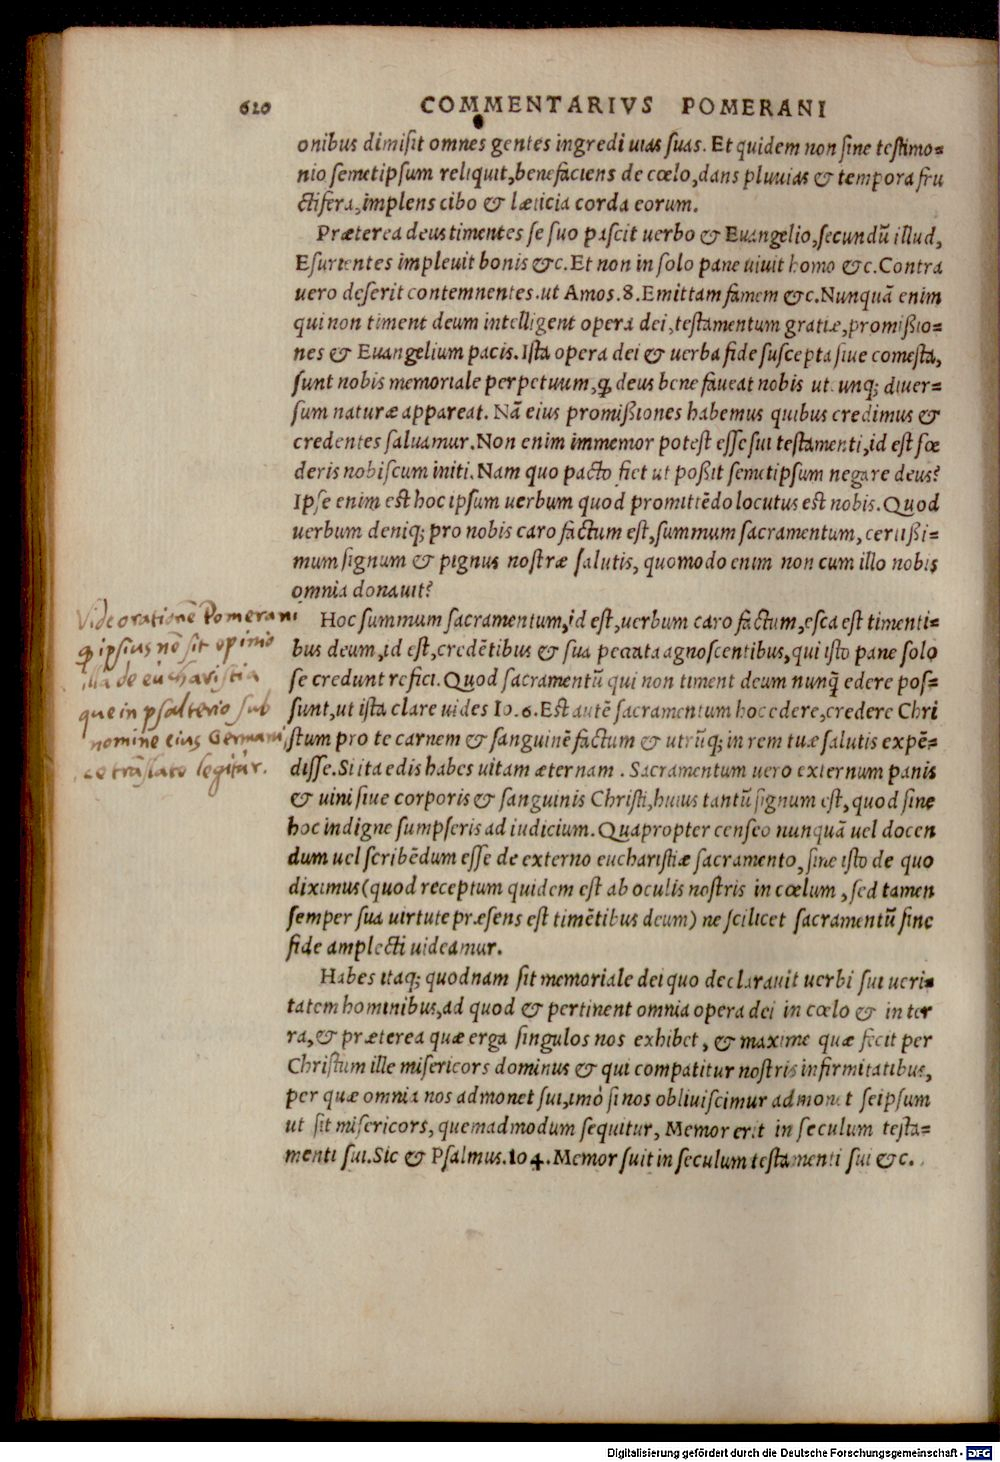 620 COMMENTARIVS POMERANI
onibus dimiſit omnes gentes ingredi uias ſuas. Et quidem non ſine teſtimo=
nio ſemetipſum reliquit, benefaciens de cœlo, dans pluuias & tempora fru
ctifera, implens cibo & læticia corda eorum.
Præterea deus timentes ſe ſuo paſcit uerbo & Euangelio, ſecundũ illud,
Eſurientes impleuit bonis &c. Et non in ſolo pane uiuit homo &c. Contra
uero deſerit contemnentes. ut Amos. 8. Emittam famem &c. Nunquã enim
qui non timent deum intelligent opera dei, teſtamentum gratiæ, promißio=
nes & Euangelium pacis. Iſta opera dei & uerba fide ſuſcepta ſiue comeſta,
ſunt nobis memoriale perpetuum, ꝙ deus bene faueat nobis utcunq; diuer=
ſum naturæ appareat. Nã eius promißiones habemus quibus credimus &
credentes ſaluamur. Non enim immemor poteſt eſſe ſui teſtamenti, id eſt fœ
deris nobiſcum initi. Nam quo pacto fiet ut poßit ſemetipſum negare deus?
Ipſe enim eſt hoc ipſum uerbum quod promittẽdo locutus eſt nobis. Quod
uerbum deniq; pro nobis caro factum eſt, ſummum ſacramentum, certißi=
mum ſignum & pignus noſtræ ſalutis, quomodo enim non cum illo nobis
omnia donauit?
Hoc ſummum ſacramentum, id eſt, uerbum caro factum, eſca eſt timenti=
bus deum, id eſt, credẽtibus & ſua peccata agnoſcentibus, qui iſto pane ſolo
ſe credunt refici. Quod ſacramentũ qui non timent deum nunq̃ edere poſ=
ſunt, ut iſta clare uides Io. 6. Eſt autẽ ſacramentum hoc edere, credere Chri
ſtum pro te carnem & ſanguinẽ factum & utrũq; in rem tuæ ſalutis expẽ=
diſſe. Si ita edis habes uitam æternam. Sacramentum uero externum panis
& uini ſiue corporis & ſanguinis Chriſti, huius tantũ ſignum eſt, quod ſine
hoc indigne ſumpſeris ad iudicium. Quapropter cenſeo nunquã uel docen
dum uel ſcribẽdum eſſe de externo euchariſtiæ ſacramento, ſine iſto de quo
diximus (quod receptum quidem eſt ab oculis noſtris in cœlum, ſed tamen
ſemper ſua uirtute præſens eſt timẽtibus deum) ne ſcilicet ſacramentũ ſine
fide amplecti uideamur.
Habes itaq; quodnam ſit memoriale dei quo declarauit uerbi ſui ueri=
tatem hominibus, ad quod & pertinent omnia opera dei in cœlo & in ter
ra, & præterea quæ erga ſingulos nos exhibet, & maxime quæ fecit per
Chriſtum ille miſericors dominus & qui compatitur noſtris infirmitatibus,
per quæ omnia nos admonet ſui, imò ſi nos obliuiſcimur admonet ſeipſum
ut ſit miſericors, quemadmodum ſequitur, Memor erit in ſeculum teſta=
menti ſui. Sic & Pſalmus. 104. Memor fuit in ſeculum teſtamenti ſui &c.
Vide orationẽ Pomerani
ꝙ ipsius nõ sit opinio
illa de eucharistia
que in psalterio sub
nomine eius Germani
ce trãslato legitur.
Digitalisierung gefördert durch die Deutsche Forschungsgemeinschaft - DFG